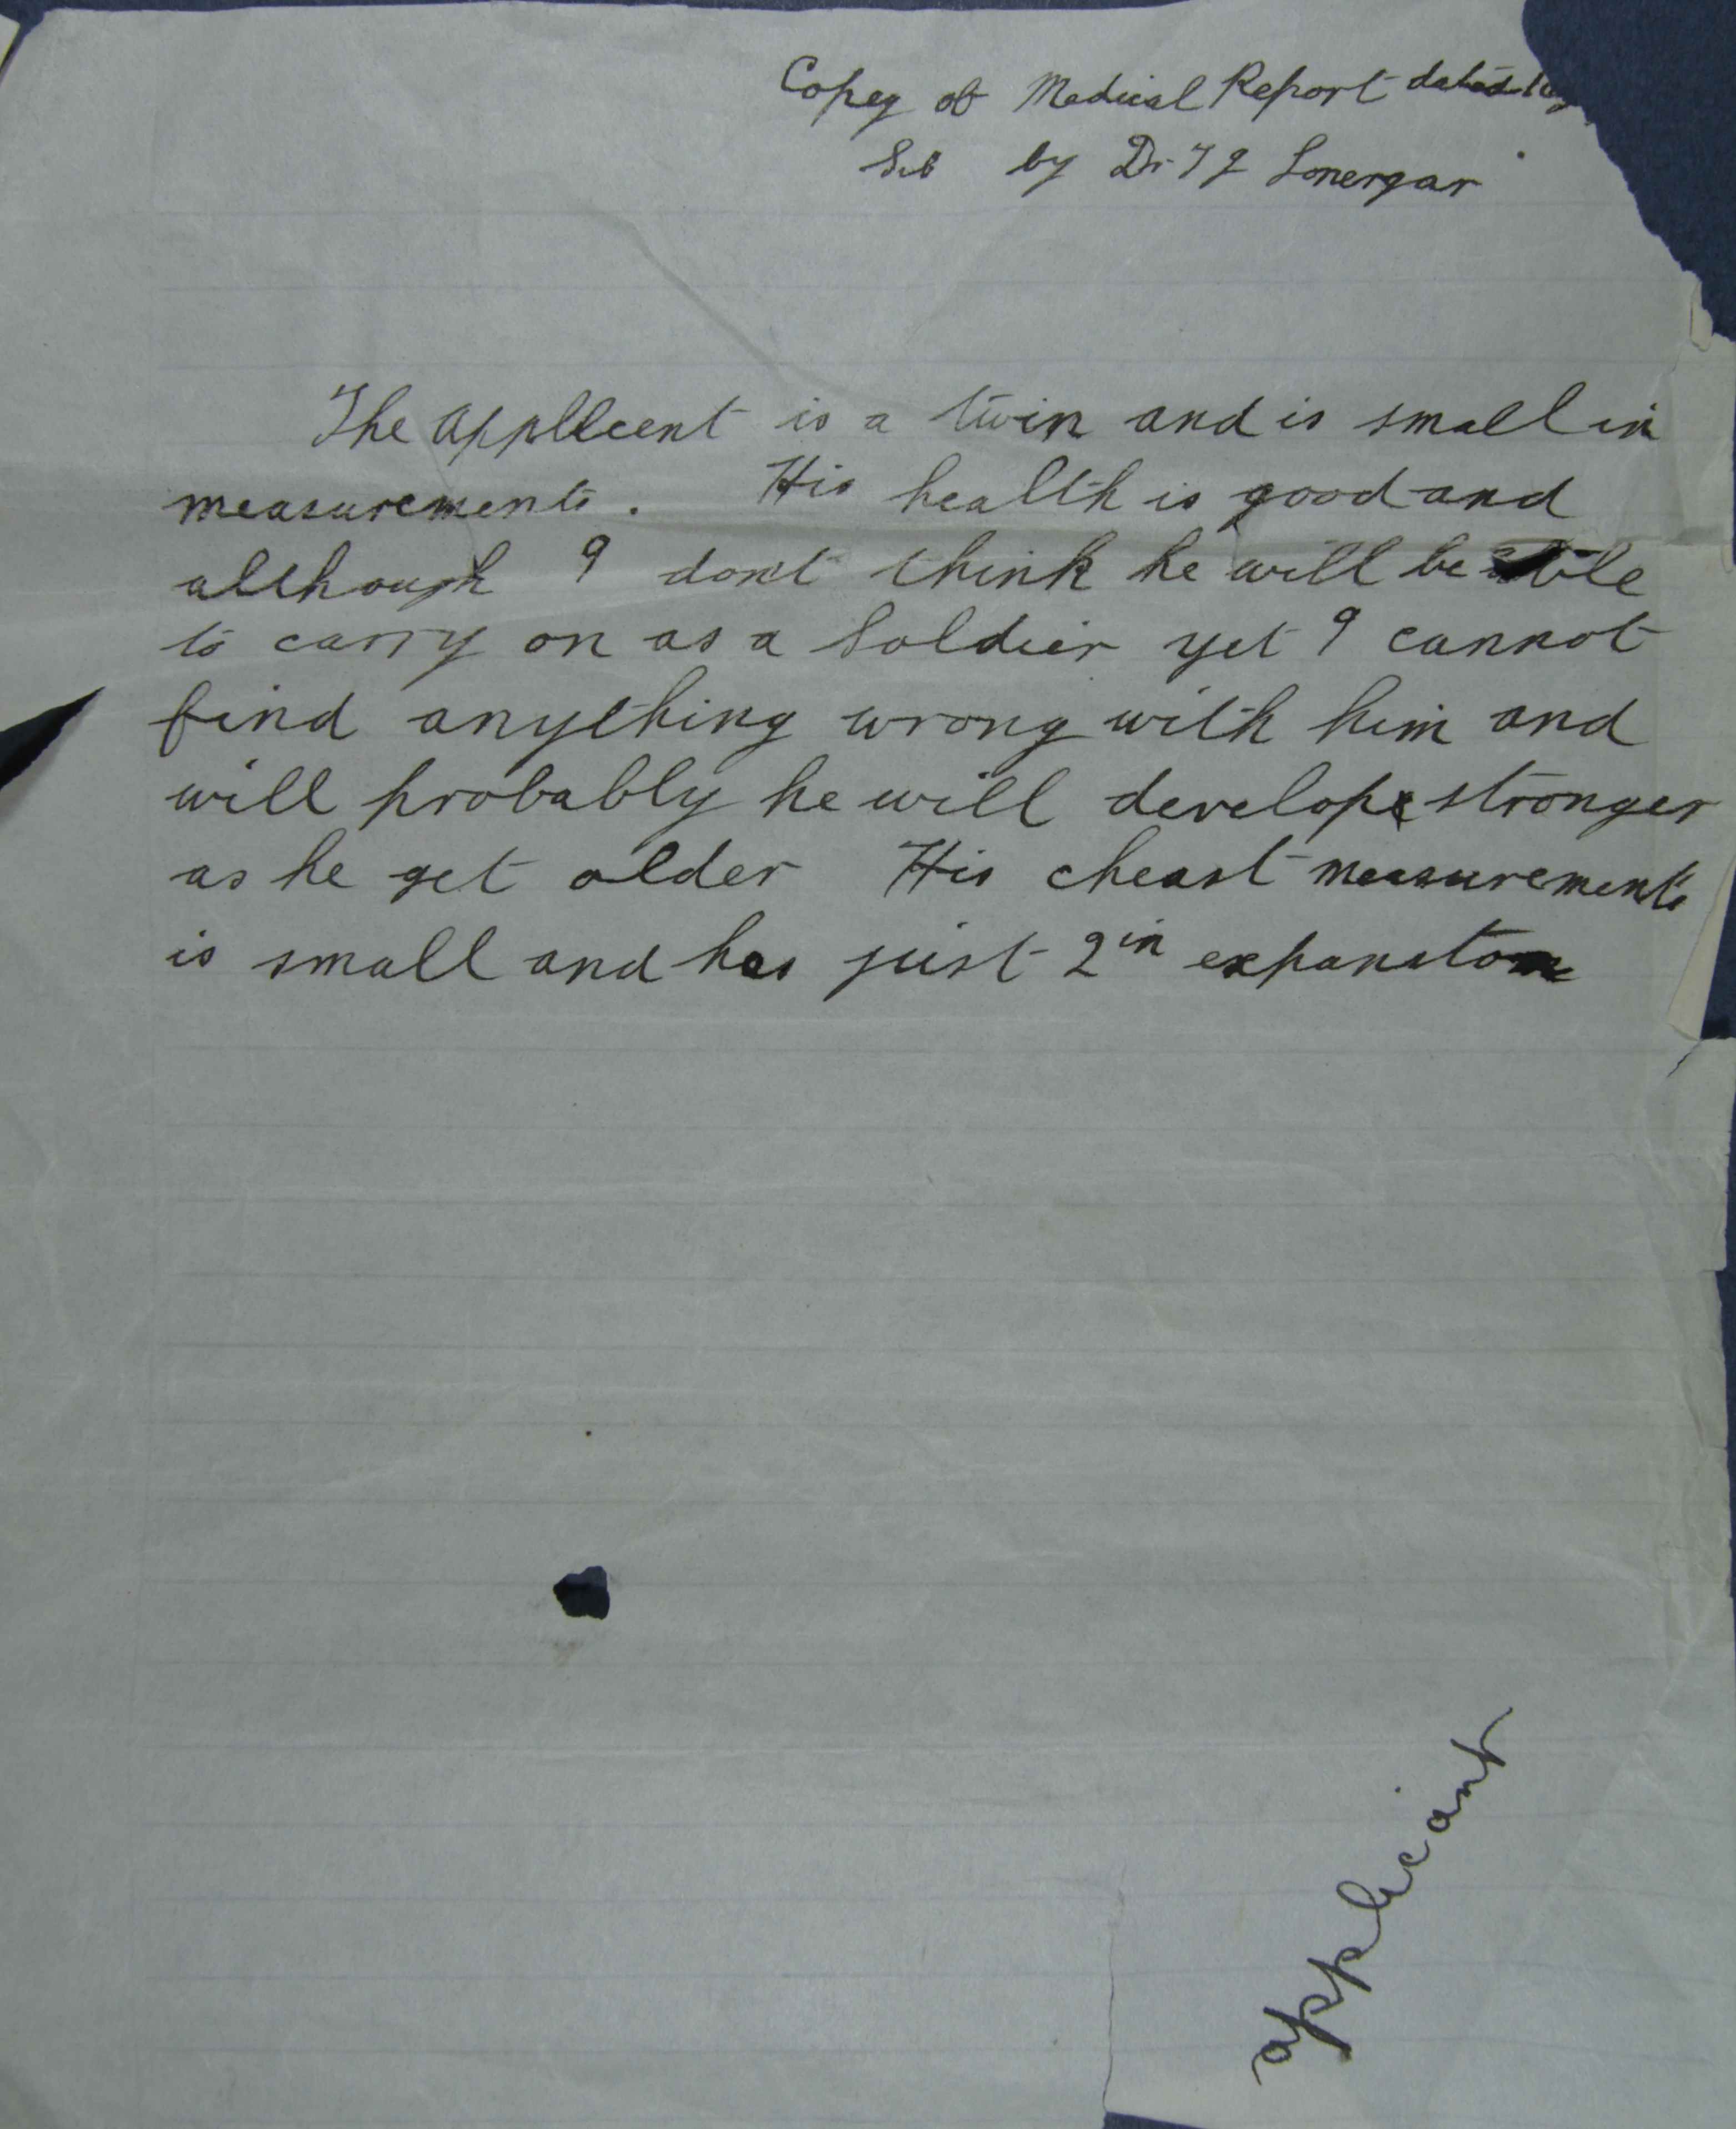 Copey of Medical Report dated
by Dr T J Lonergan
The Appllecent is a twin and is small in
measurements. His health is good and
although I dont think he will be able
to carry on as a Soldier yet I cannot
find anything wrong with him and
will probably he will develope stronger
as he get older His cheast measurements
is small and has just 2in expanston
applicant